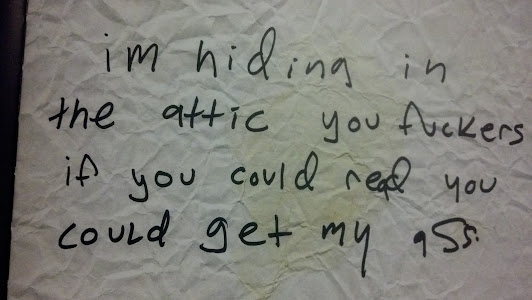 im hiding in
the attic you fuckers
if you could read you
could get my ass.